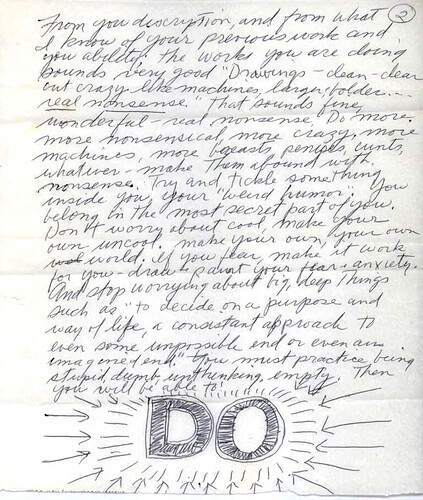 From you description, and from what
2
I know of your previous work and
you ability; the works you are doing
sounds very good "Drawings – clean – clear
but crazy like machines, larger, bolder....
real nonsense." That sounds fine,
wonderful – real nonsense. Do more.
more nonsensical, more crazy, more
machines, more breasts, penises, cunts,
whatever – make them abound with
nonsense. Try and tickle something
inside you, your "weird humor." You
belong in the most secret part of you.
Don't worry about cool, make your
own uncool. make your own, your own
world. If you fear, make it work
for you – draw & paint your fear & anxiety.
And stop worrying about big, deep things
such as "to decide on a purpose and
way of life, a consistant approach to
even some impossible end or even an
imagined end." You must practice being
stupid, dumb, unthinking, empty. Then
you will be able to
DO